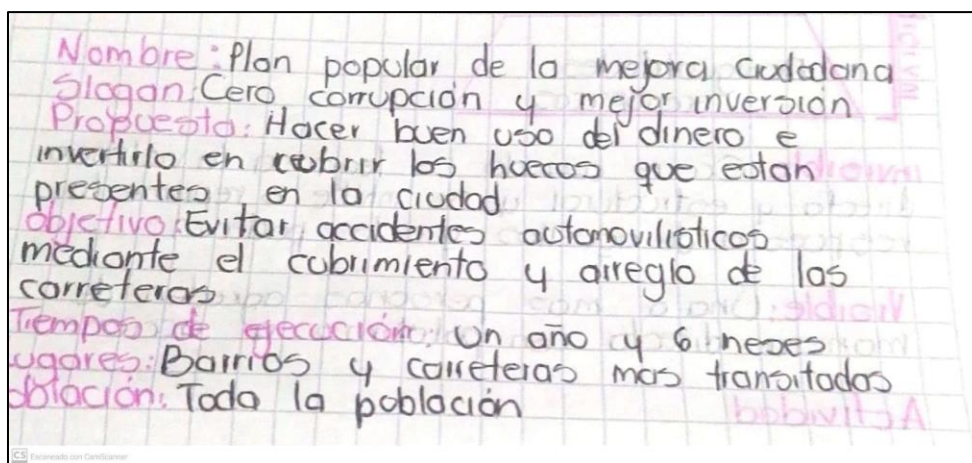 Nombre: Plan popular de la mejora ciudadana
Slogan: Cero corrupción y mejor inversión
Propuesta: Hacer buen uso del dinero e
invertirlo en cubrir los huecos que estan
presentes en la ciudad
objetivo: Evitar accidentes automovilisticos
mediante el cubrimiento y arreglo de las
carreteras
Tiempos de ejecución: Un año y 6 meses
ugares: Barrios y carreteras mas transitados
oblación: Toda la población
CS Escaneado con CamScanner